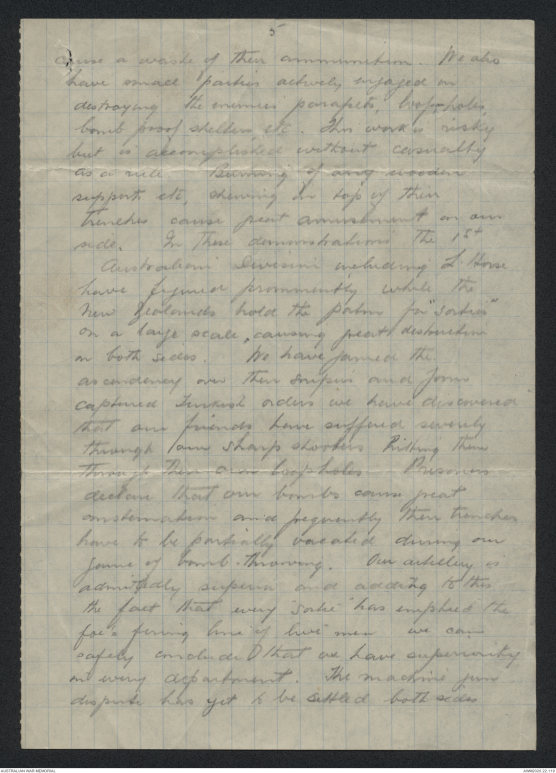 5
cause a waste of their ammunition. We also
have small parties actively engaged in
destroying the enemies parapets, loopholes,
bomb proof shelters etc. This work is risky
but is accomplished without casualty
as a rule. Burning of any wooden
supports etc, shewing on top of their
trenches cause great amusement on our
side. In these demonstrations the 1st
Australian Division including L Horse
have figured prominently while the
New Zealands hold the palm for "sorties"
on a large scale, causing great destruction
on both sides. We have gained the
ascendency over their snipers and from
captured Turkish orders we have discovered
that our friends have suffered severely
through our sharp shooters hitting them
through their own loopholes. Prisoners
declare that our bombs cause great
consternation and frequently their trenches
have to be partially vacated during our
game of bomb-throwing. Our artillery is
admittedly superior and adding to this
the fact that every sortie has emptied the
foe's firing line of live men we can
safely conclude that we have superiority
in every department. The machine gun
dispute has yet to be settled both sides
AUSTRALIAN WAR MEMORIAL